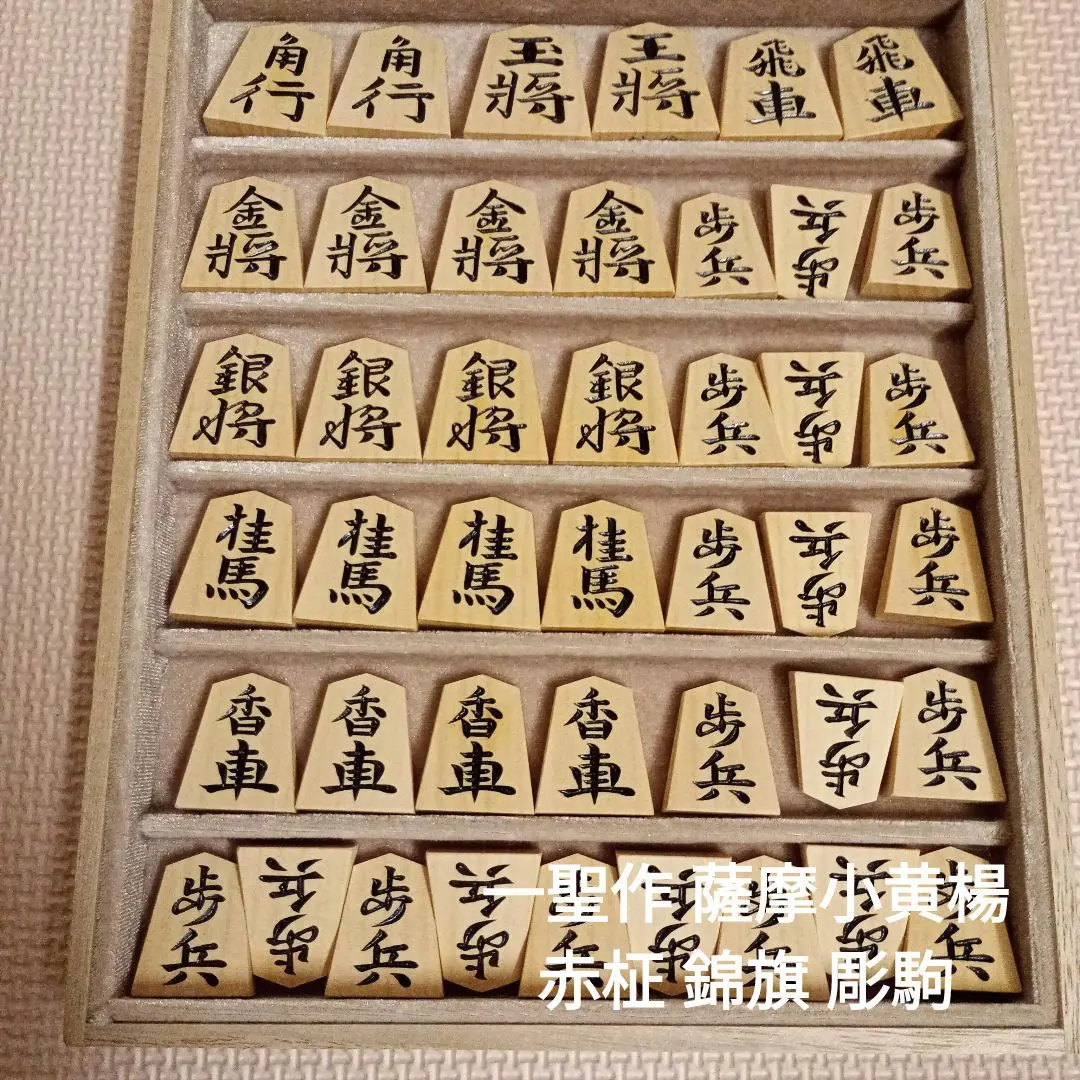 角行
角行
玉將
王將
飛車
飛車
金將
金將
金將
金將
歩兵
歩兵
歩兵
銀将
銀将
銀将
銀将
歩兵
歩兵
歩兵
桂馬
桂馬
桂馬
桂馬
歩兵
歩兵
歩兵
香車
香車
香車
香車
歩兵
歩兵
歩兵
歩兵
歩兵
歩兵
歩兵
歩兵
歩兵
歩兵
歩兵
歩兵
一聖作 薩摩小黄楊
赤柾 錦旗 彫駒